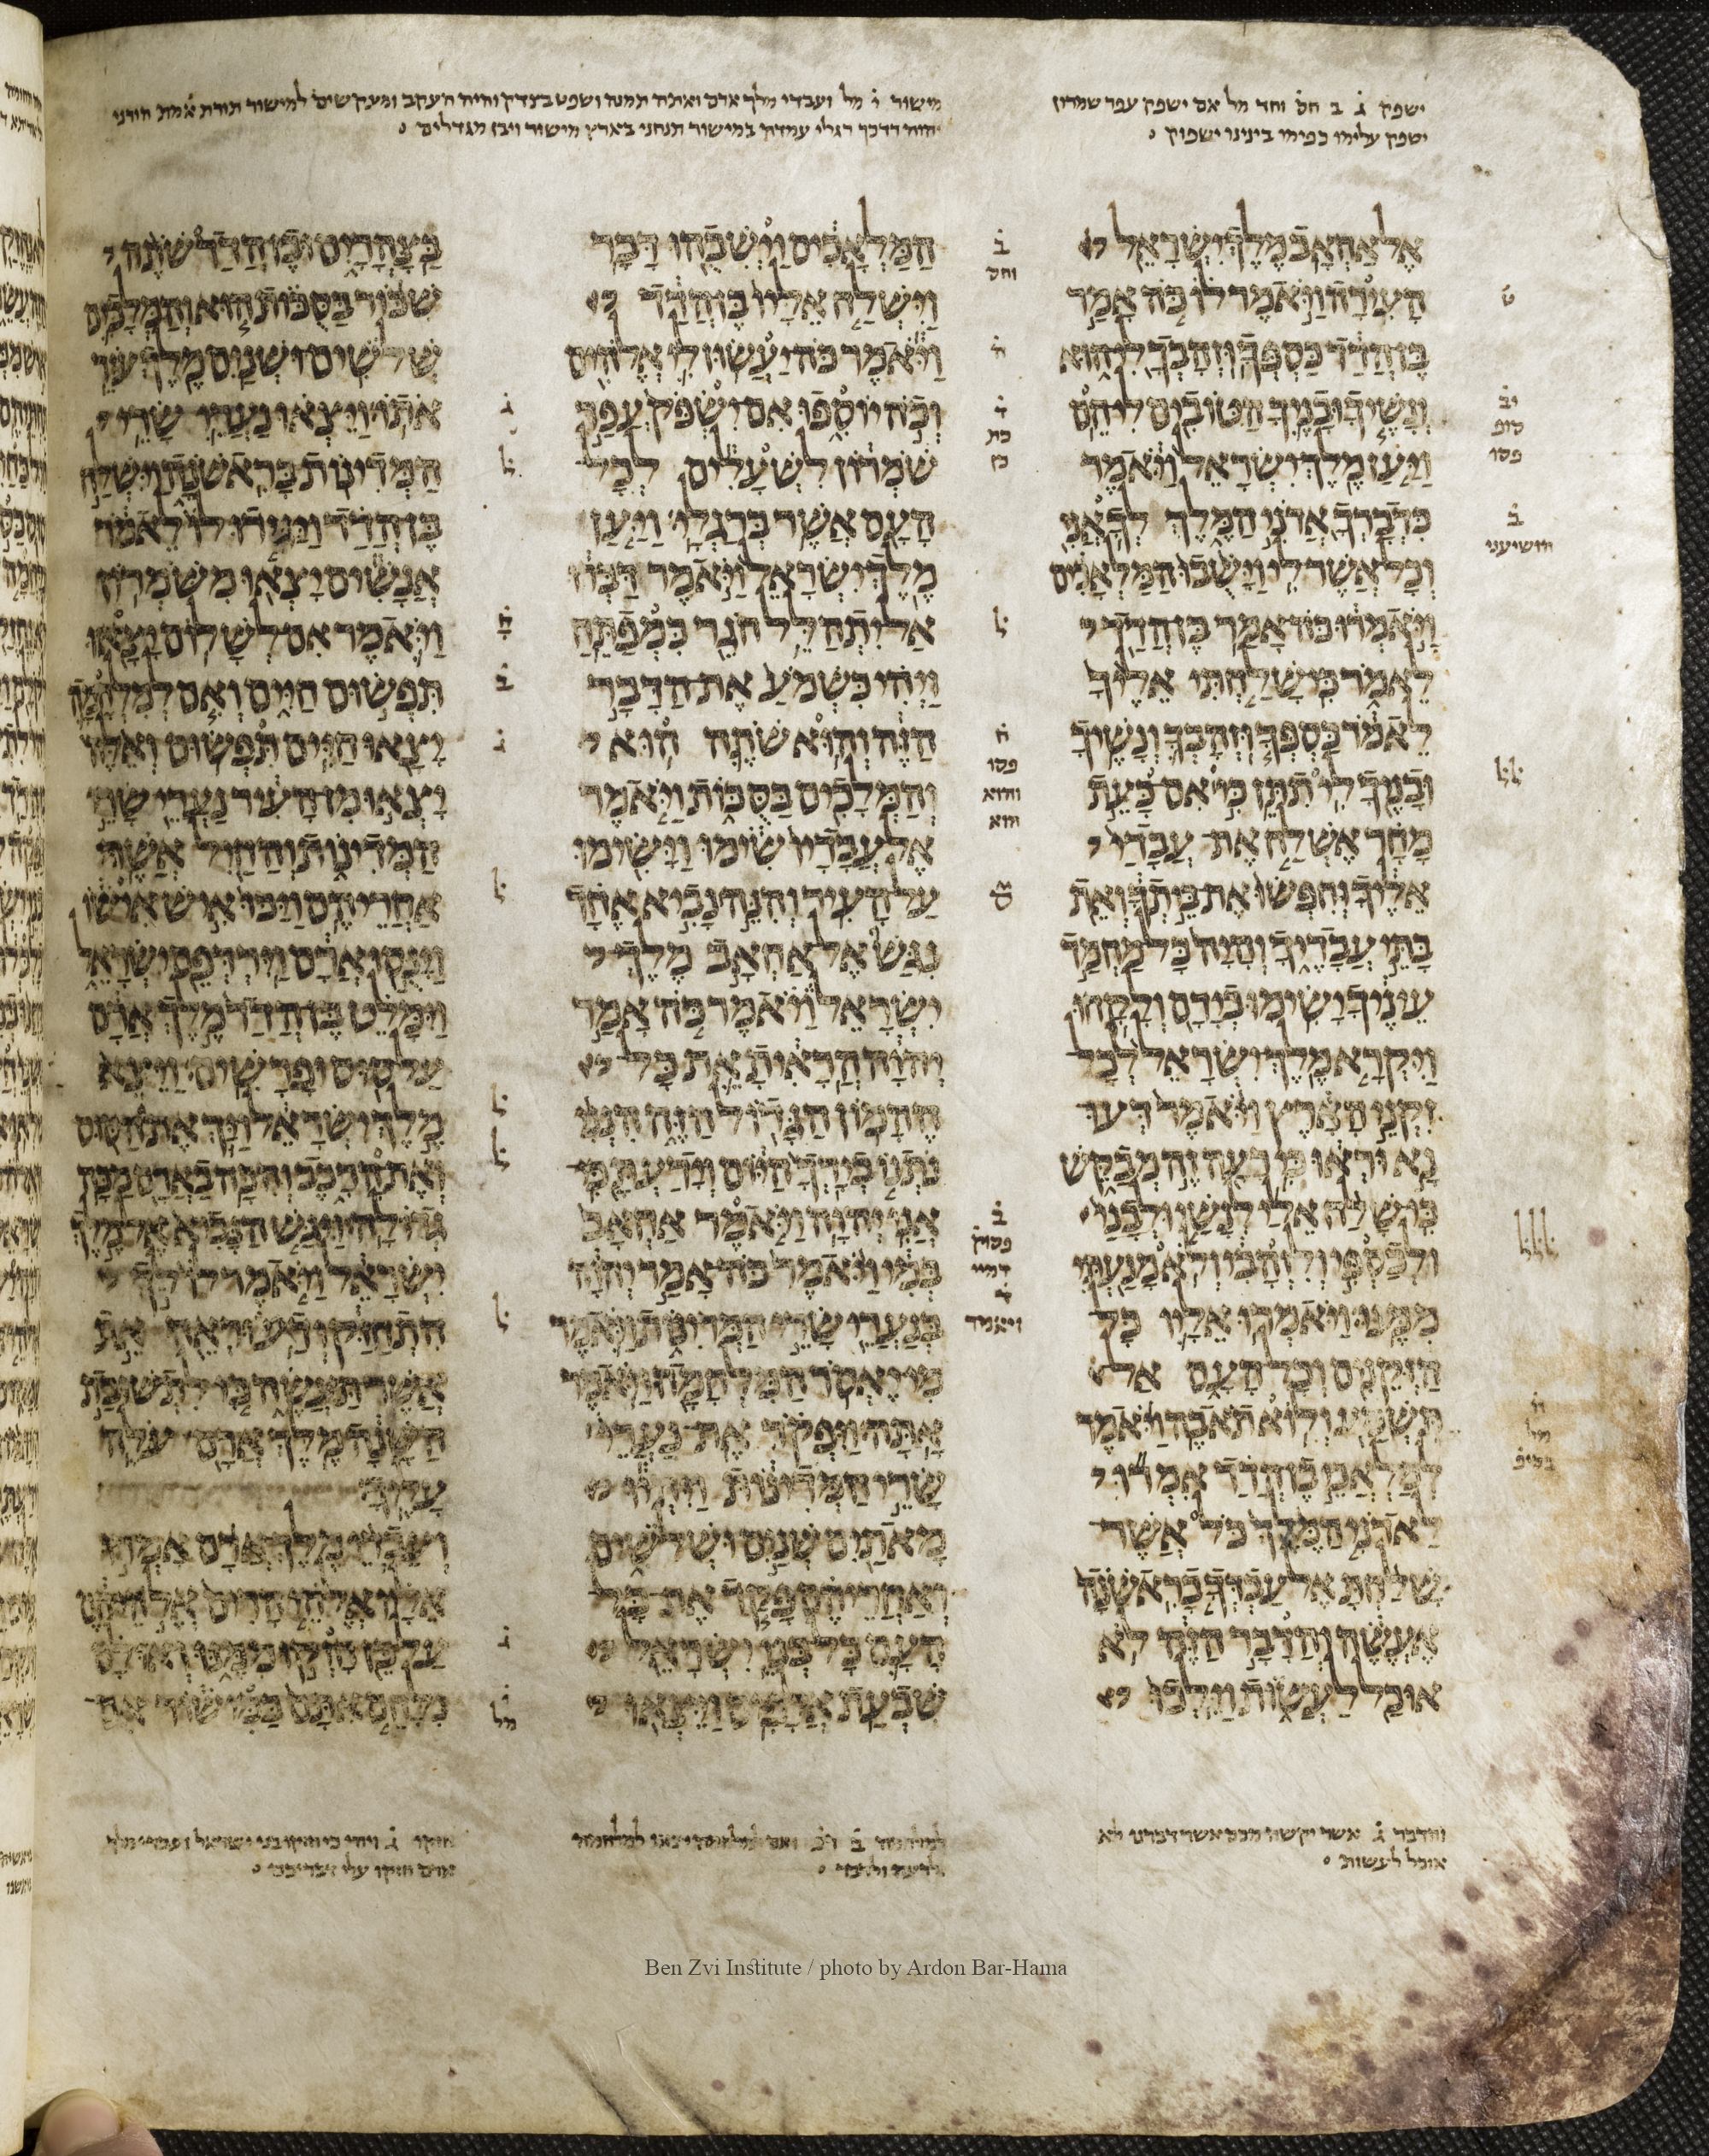 ישפק ג ב חס וחד מל אם ישפק עפר שמרון
ישפק עלימו כפימו בינינו ישפוק
יהוה דרכך רגלי עמדה במישור תנחני בארץ מישור ויבן מגדלים
אל אחאב מלך ישראל
העירה ויאמר לו כה אמר
בן הדד כספך וזהבך לי הוא
ונשיך ובניך הטובים לי הם
ויען מלך ישראל ויאמר
כדברך אדני המלך לך אני
וכל אשר לי וישבו המלאכים
ויאמרו כה אמר בן הדד
לאמר כי שלחתי אליך
לאמר כספך וזהבך ונשיך
ובניך לי תתן כי אם כעת
מחר אשלח את עבדי
אליך וחפשו את ביתך ואת
בתי עבדיך והיה כל מחמד
עיניך ישימו בידם ולקחו
ויקרא מלך ישראל לכל
זקני הארץ ויאמר דעו
נא וראו כי רעה זה מבקש
כי שלח אלי לנשי ולבני
ולכספי ולזהבי ולא מנעתי
ממנו ויאמרו אליו כל
הזקנים וכל העם אל
תשמע ולוא תאבה ויאמר
למלאכי בן הדד אמרו
לאדני המלך כל אשר
שלחת אל עבדך בראשנה
אעשה והדבר הזה לא
אוכל לעשות וילכו
המלאכים וישבהו דבר
וישלח אליו בן הדד
ויאמר כה יעשון לי אלהים
וכה יוספו אם ישפק עפר
שמרון לשעלים לכל
העם אשר ברגלי ויען
מלך ישראל ויאמר דברו
אל יתהלל חגר כמפתח
ויהי כשמע את הדבר
הזה והוא שתה הוא
והמלכים בסכות ויאמר
אל עבדיו שימו וישימו
על העיר והנה נביא אחד
נגש אל אחאב מלך
ישראל ויאמר כה אמר
יהוה הראית את כל
ההמון הגדול הזה הנני
נתנו בידך היום וידעת כי
אני יהוה ויאמר אחאב
במי ויאמר כה אמר יהוה
בנערי שרי המדינות ויאמר
מי יאסר המלחמה ויאמר
אתה ויפקד את נערי
שרי המדינות ויהיו
מאתים שנים ושלשים
ואחריהם פקד את כל
העם כל בני ישראל
שבעת אלפים ויצאו
בצהרים ובן הדד שתה
שכור בסכות הוא והמלכים
שלשים ושנים מלך עזר
אתו ויצאו נערי שרי
המדינות בראשנה וישלח
בן הדד ויגידו לו לאמר
אנשים יצאו משמרון
ויאמר אם לשלום יצאו
תפשום חיים ואם למלחמה
יצאו חיים תפשום ואלה
יצאו מן העיר נערי שרי
המדינות והחיל אשר
אחריהם ויכו איש אישו
וינסו ארם וירדפם ישראל
וימלט בן הדד מלך ארם
על סוס ופרשים ויצא
מלך ישראל ויך את הסוס
ואת הרכב והכה בארם מכה
גדולה ויגש הנביא אל מלך
ישראל ויאמר לו לך
התחזק ודע וראה את
אשר תעשה כי לתשובת
השנה מלך ארם עלה
עליך
ועבדי מלך ארם אמרו
אליו אלהי הרים אלהיהם
על כן חזקו ממנו ואולם
נלחם אתם במישור אם
והדבר ג אשר יקשה מכם אשר דברנו לא
אוכל לעשות
Ben Zvi Institute / photo by Ardon Bar-Hama